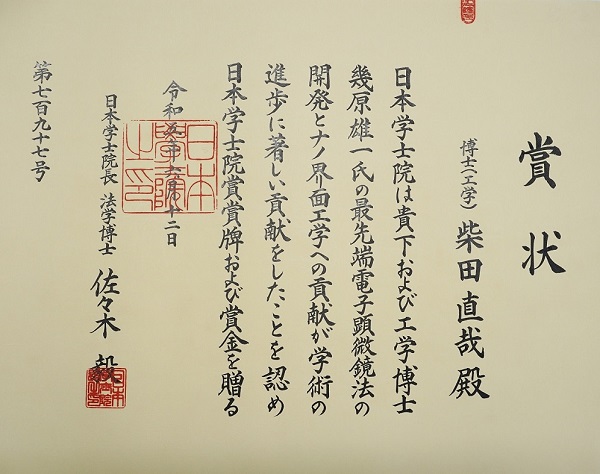 賞状
博士(工学) 柴田直哉殿
日本学士院は貴下および工学博士
幾原雄一氏の最先端電子顕微鏡法の
開発とナノ界面工学への貢献が学術の
進歩に著しい貢献をしたことを認め
日本学士院賞賞牌および賞金を贈る
令和五年六月十二日
日本学士院長 法学博士 佐々木毅
第七百九十七号
日本
學士院
之印